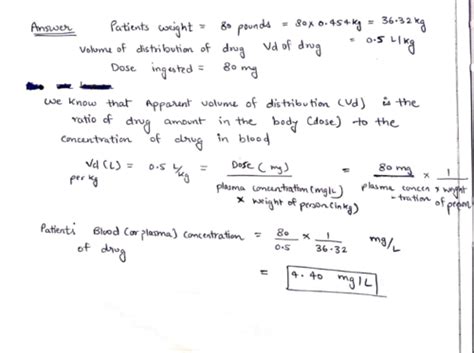 Answer Patients weight = 80 pounds = 80 x 0.454 kg = 36.32 kg
Volume of distribution of drug Vd of drug = 0.5 L/kg
Dose ingested = 80 mg
We know that Apparent volume of distribution (Vd) is the
ratio of drug amount in the body (dose) to the
concentration of drug in blood
Vd (L) per kg = 0.5 L/kg = Dose (mg) / plasma concentration (mg/L) x weight of person (in kg) = 80 mg / plasma concen-tration x 1 / weight of person
Patient's Blood (or plasma) Concentration of drug = 80/0.5 x 1/36.32 mg/L
= 4.40 mg/L